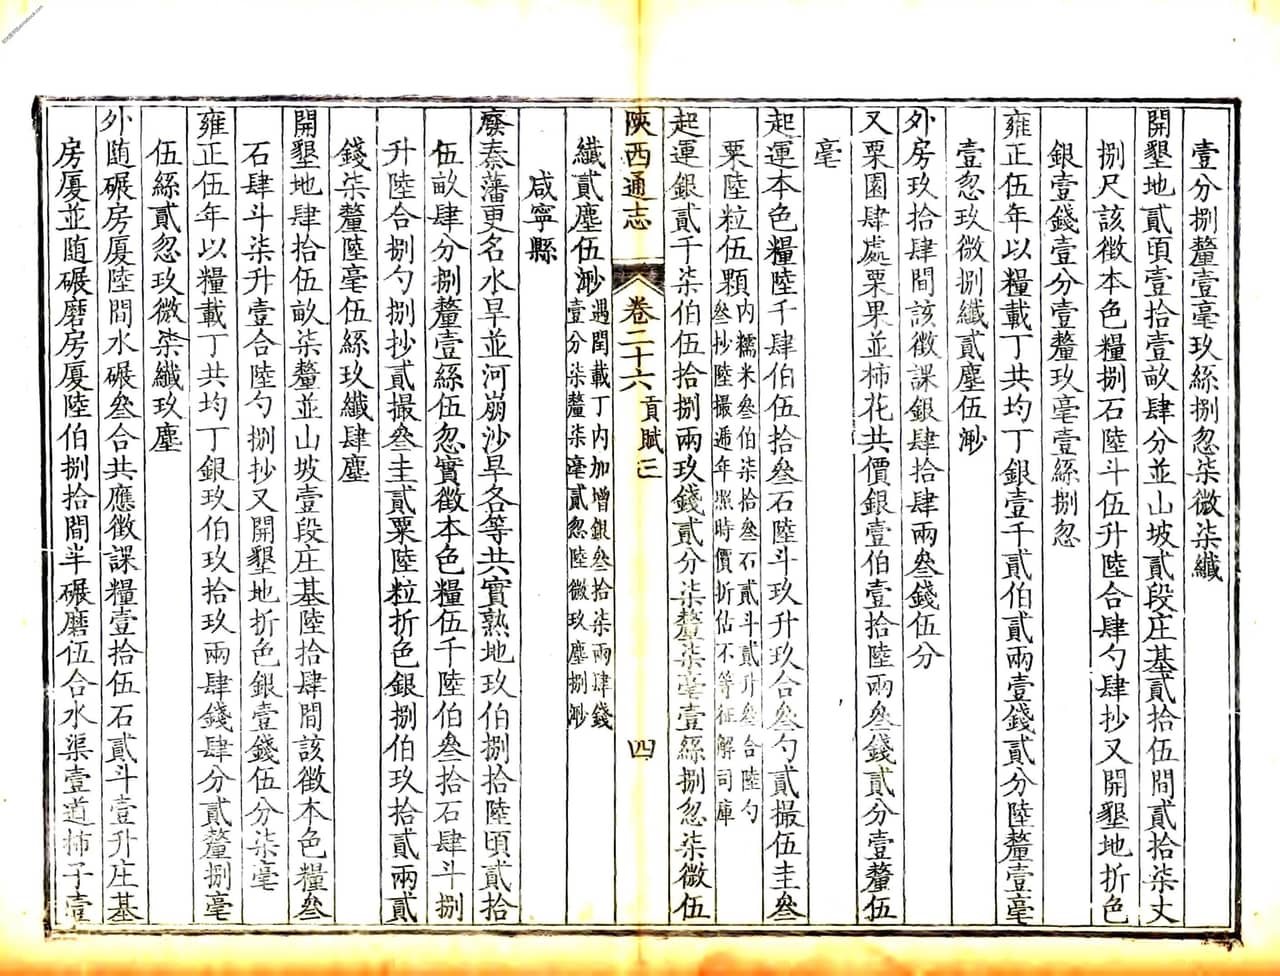 壹分捌釐壹毫玖絲捌忽柒微柒纖
開墾地貳頃壹拾壹畝肆分並山坡貳段庄基貳拾伍間貳拾柒丈
捌尺該徵本色糧捌石陸斗伍升陸合肆勺肆抄又開墾地折色
銀壹錢壹分壹釐玖毫壹絲捌忽
雍正伍年以糧載丁共均丁銀壹千貳伯貳兩壹錢貳分陸釐壹毫
壹忽玖微捌纖貳塵伍渺
外房玖拾肆間該徵課銀肆拾肆兩叁錢伍分
又栗園肆處栗果並柿花共價銀壹伯壹拾陸兩叁錢貳分壹釐伍
毫
起運本色糧陸千肆伯伍拾叁石陸斗玖升玖合叁勺貳撮伍圭叁
粟陸粒伍顆內糯米叁伯柒拾叁石貳斗貳升叁合陸勺
叁抄陸撮逓年照時價折估不等征解司庫
起運銀貳千柒伯伍拾捌兩玖錢貳分柒釐柒毫壹絲捌忽柒微伍
陝西通志 卷二十六 貢賦三 四
纖貳塵伍渺遇閏載丁內加增銀叁拾柒兩肆錢
壹分柒釐柒毫貳忽陸微玖塵捌渺
咸寧縣
廢秦藩更名水旱並河崩沙旱各等共實熟地玖伯捌拾陸頃貳拾
伍畝肆分捌釐壹絲伍忽實徵本色糧伍千陸伯叁拾石肆斗捌
升陸合捌勺捌抄貳撮叁圭貳粟陸粒折色銀捌伯玖拾貳兩貳
錢柒釐陸毫伍絲玖纖肆塵
開墾地肆拾伍畝柒釐並山坡壹段庄基陸拾肆間該徵本色糧叁
石肆斗柒升壹合陸勺捌抄又開墾地折色銀壹錢伍分柒毫
雍正伍年以糧載丁共均丁銀玖伯玖拾玖兩肆錢肆分貳釐捌毫
伍絲貳忽玖微柒纖玖塵
外隨碾房厦陸間水碾叁合共應徵課糧壹拾伍石貳斗壹升庄基
房厦並随碾磨房厦陸伯捌拾間半碾磨伍合水渠壹道柿子壹